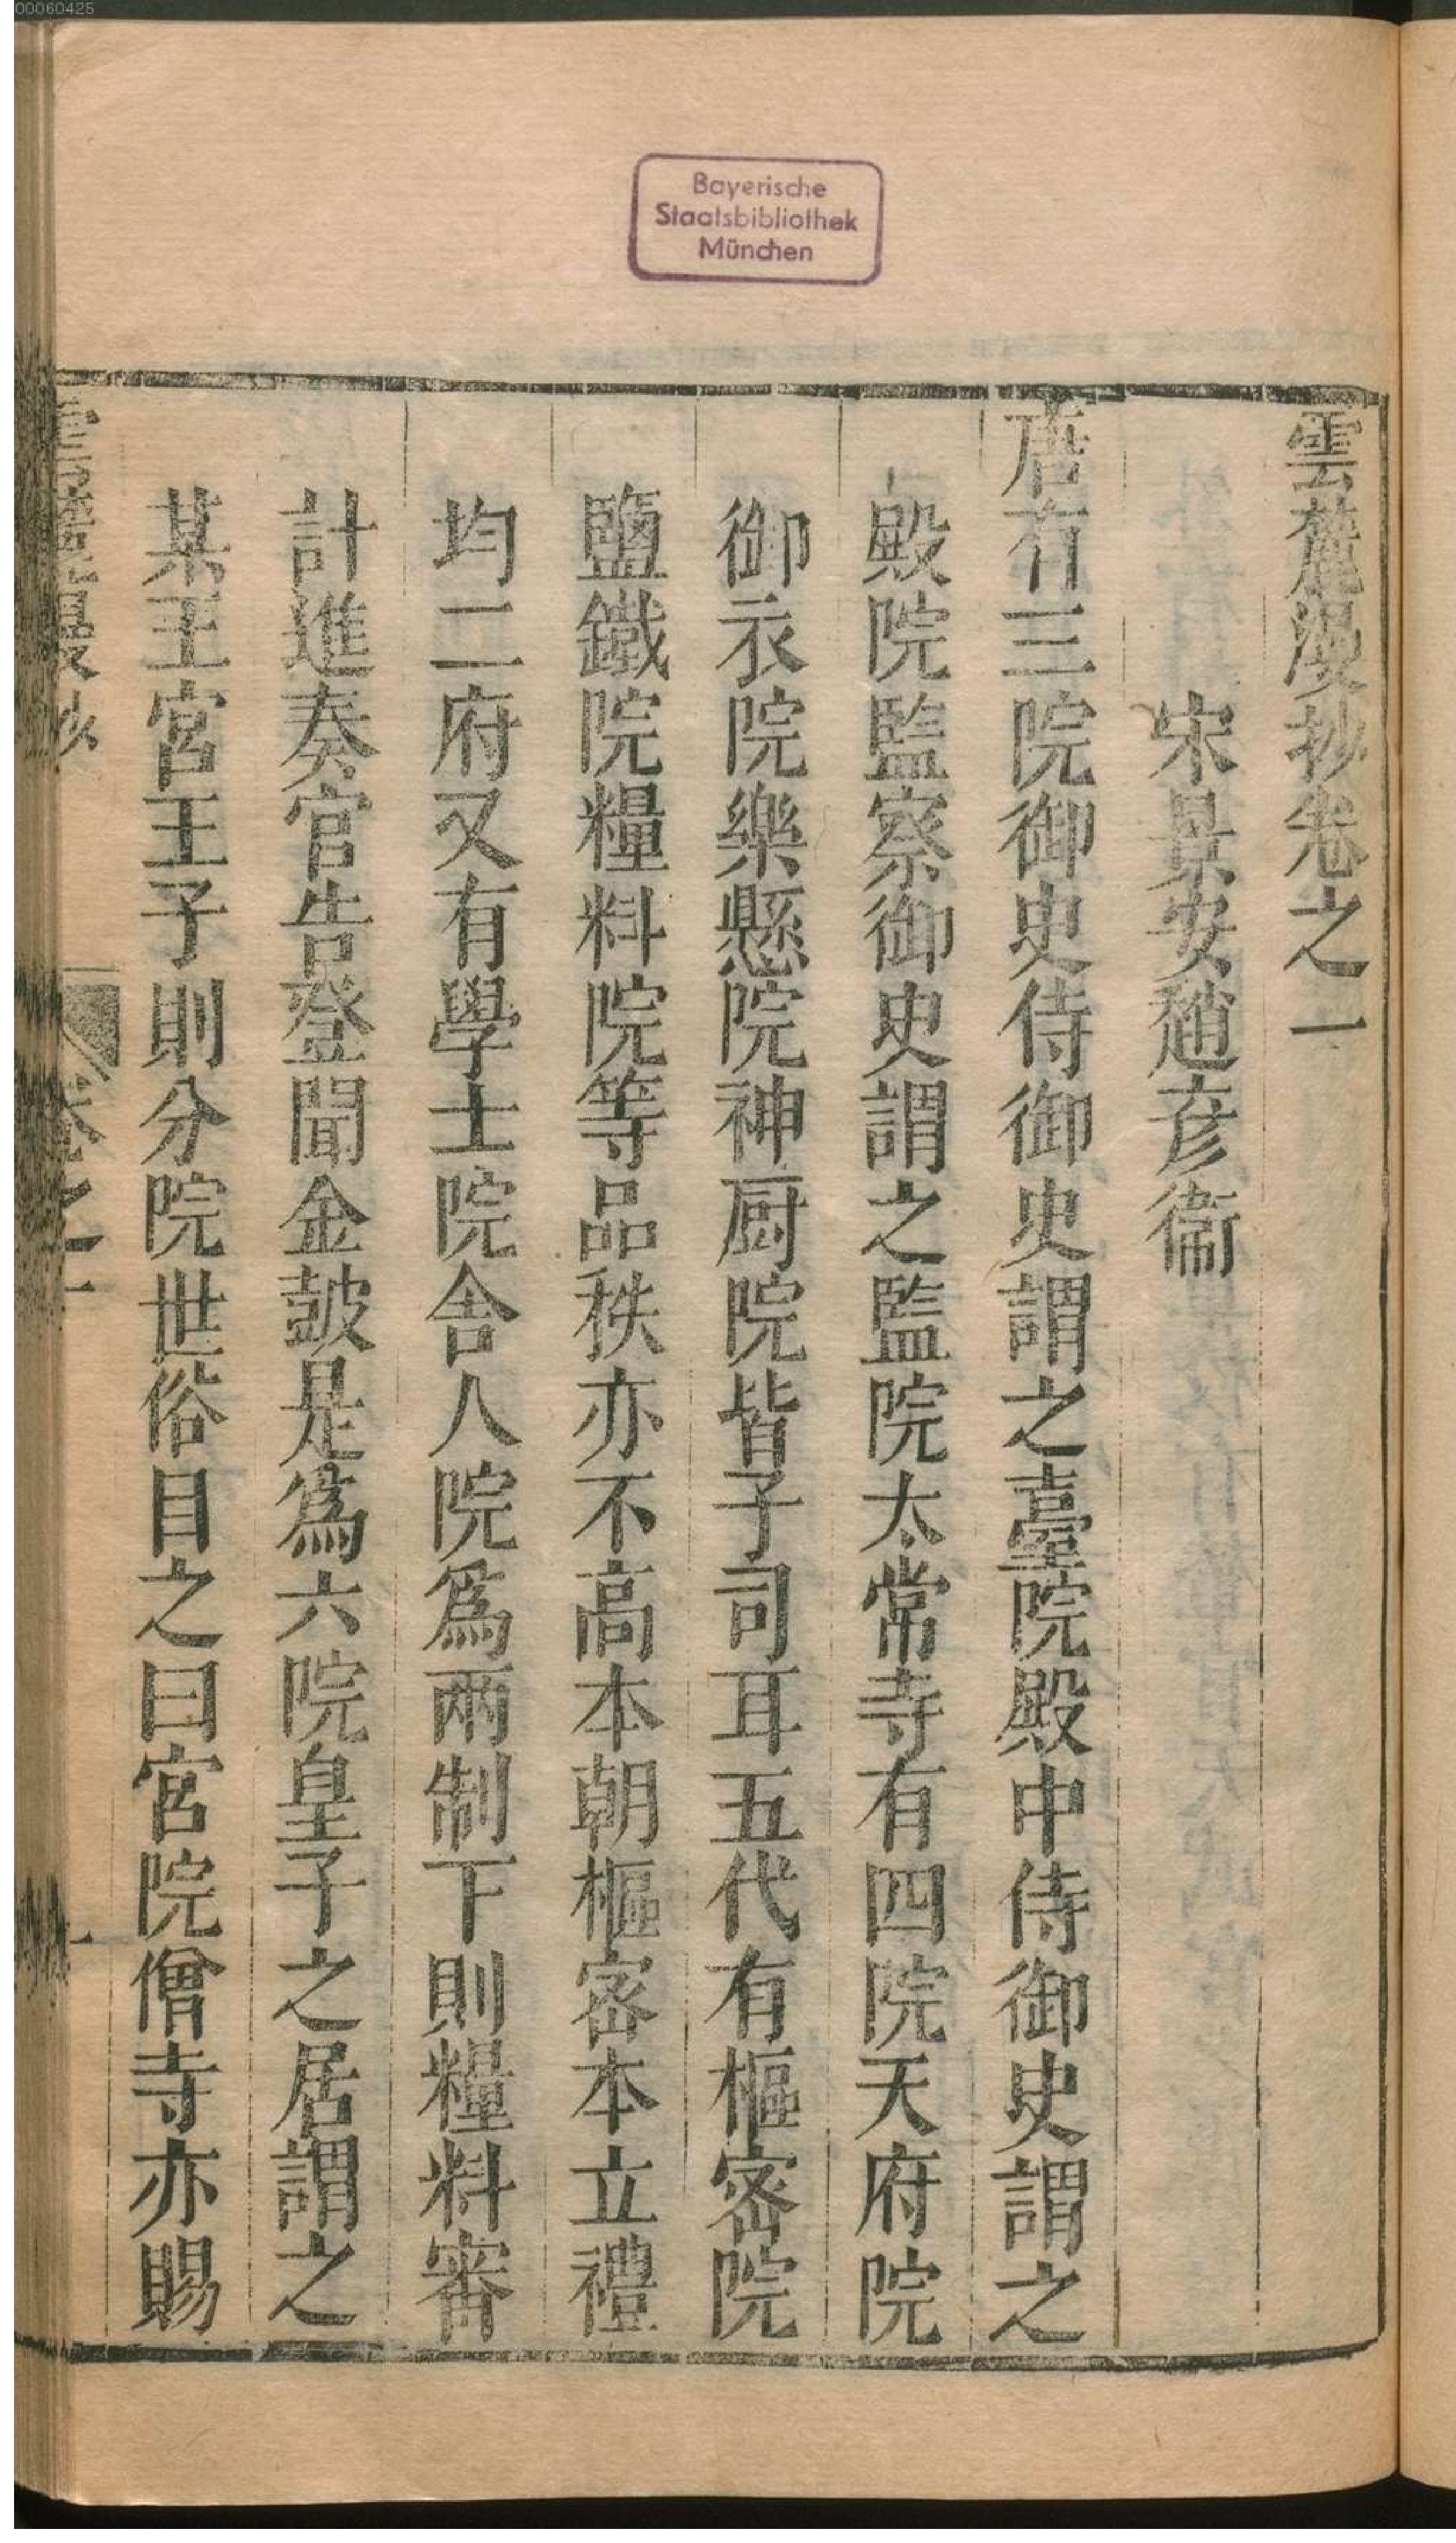 00060425
Bayerische
Staatsbibliothek
München
雲麓漫抄卷之一
宋景安趙彦衞
唐有三院御史侍御史謂之臺院殿中侍御史謂之
殿院監察御史謂之監院太常寺有四院天府院
御衣院樂懸院神厨院皆子司耳五代有樞密院
鹽鐵院糧料院等品秩亦不高本朝樞密本立禮
均二府又有學士院舎人院爲兩制下則糧料審
計進奏官告登聞金皷是爲六院皇子之居謂之
某王宮王子則分院世俗目之曰宮院僧寺亦賜
雲麓漫抄 卷之一 一